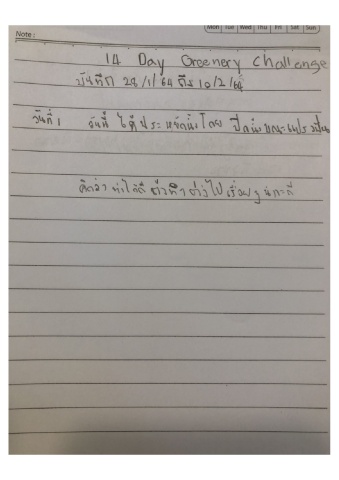 Note: Mon Tue Wed Thu Fri Sat Sun
14 Day Greenery Challenge
บันทึก 28/1/64 ถึง 10/2/64
วันที่ 1 วันนี้ ได้ประหยัดน้ำโดย ปิดน้ำขณะแปรงฟัน
คิดว่า ทำได้ดี ต้องทำต่อไปเรื่อยๆ